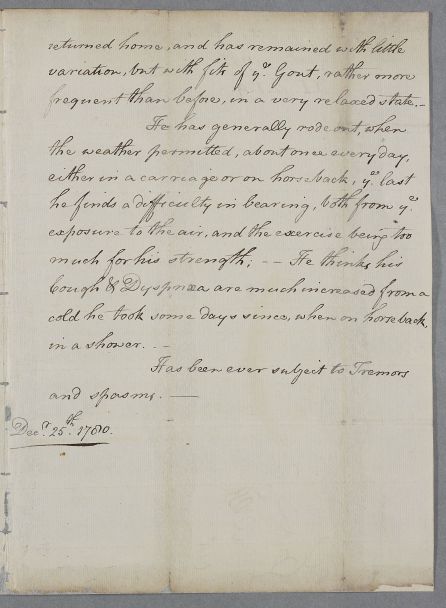 returned home, and has remained with little
variation, but with fits of yᵉ. Gout, rather more
frequent than before, in a very relaxed state. –
He has generally rode out, when
the weather permitted, about once every day,
either in a carriage or on horseback, yᵉ. last
he finds a difficulty in bearing, both from yᵉ.
exposure to the air, and the exercise being too
much for his strength; – – He thinks his
Cough & Dyspnœa are much increased from a
cold he took some days since, when on horseback,
in a shower. . –
Has been ever subject to Tremors
and spasms. —
Decʳ. 25ᵗʰ. 1780.